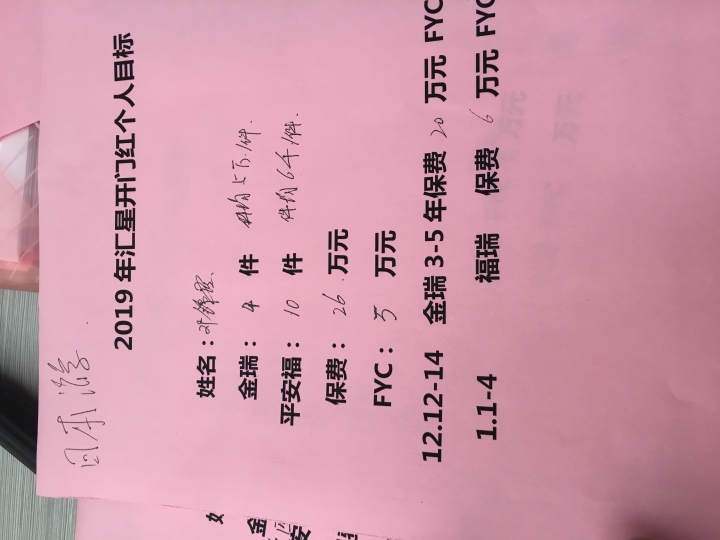 日本游.
2019年汇星开门红个人目标
姓名：邓锦
金瑞： 4 件 件均5万/件.
平安福： 10 件 件均6千/件.
保费： 26 万元
FYC： 5 万元
12.12-14 金瑞3-5年保费 20 万元 FYC
1.1-4 福瑞 保费 6 万元 FYC
金
安